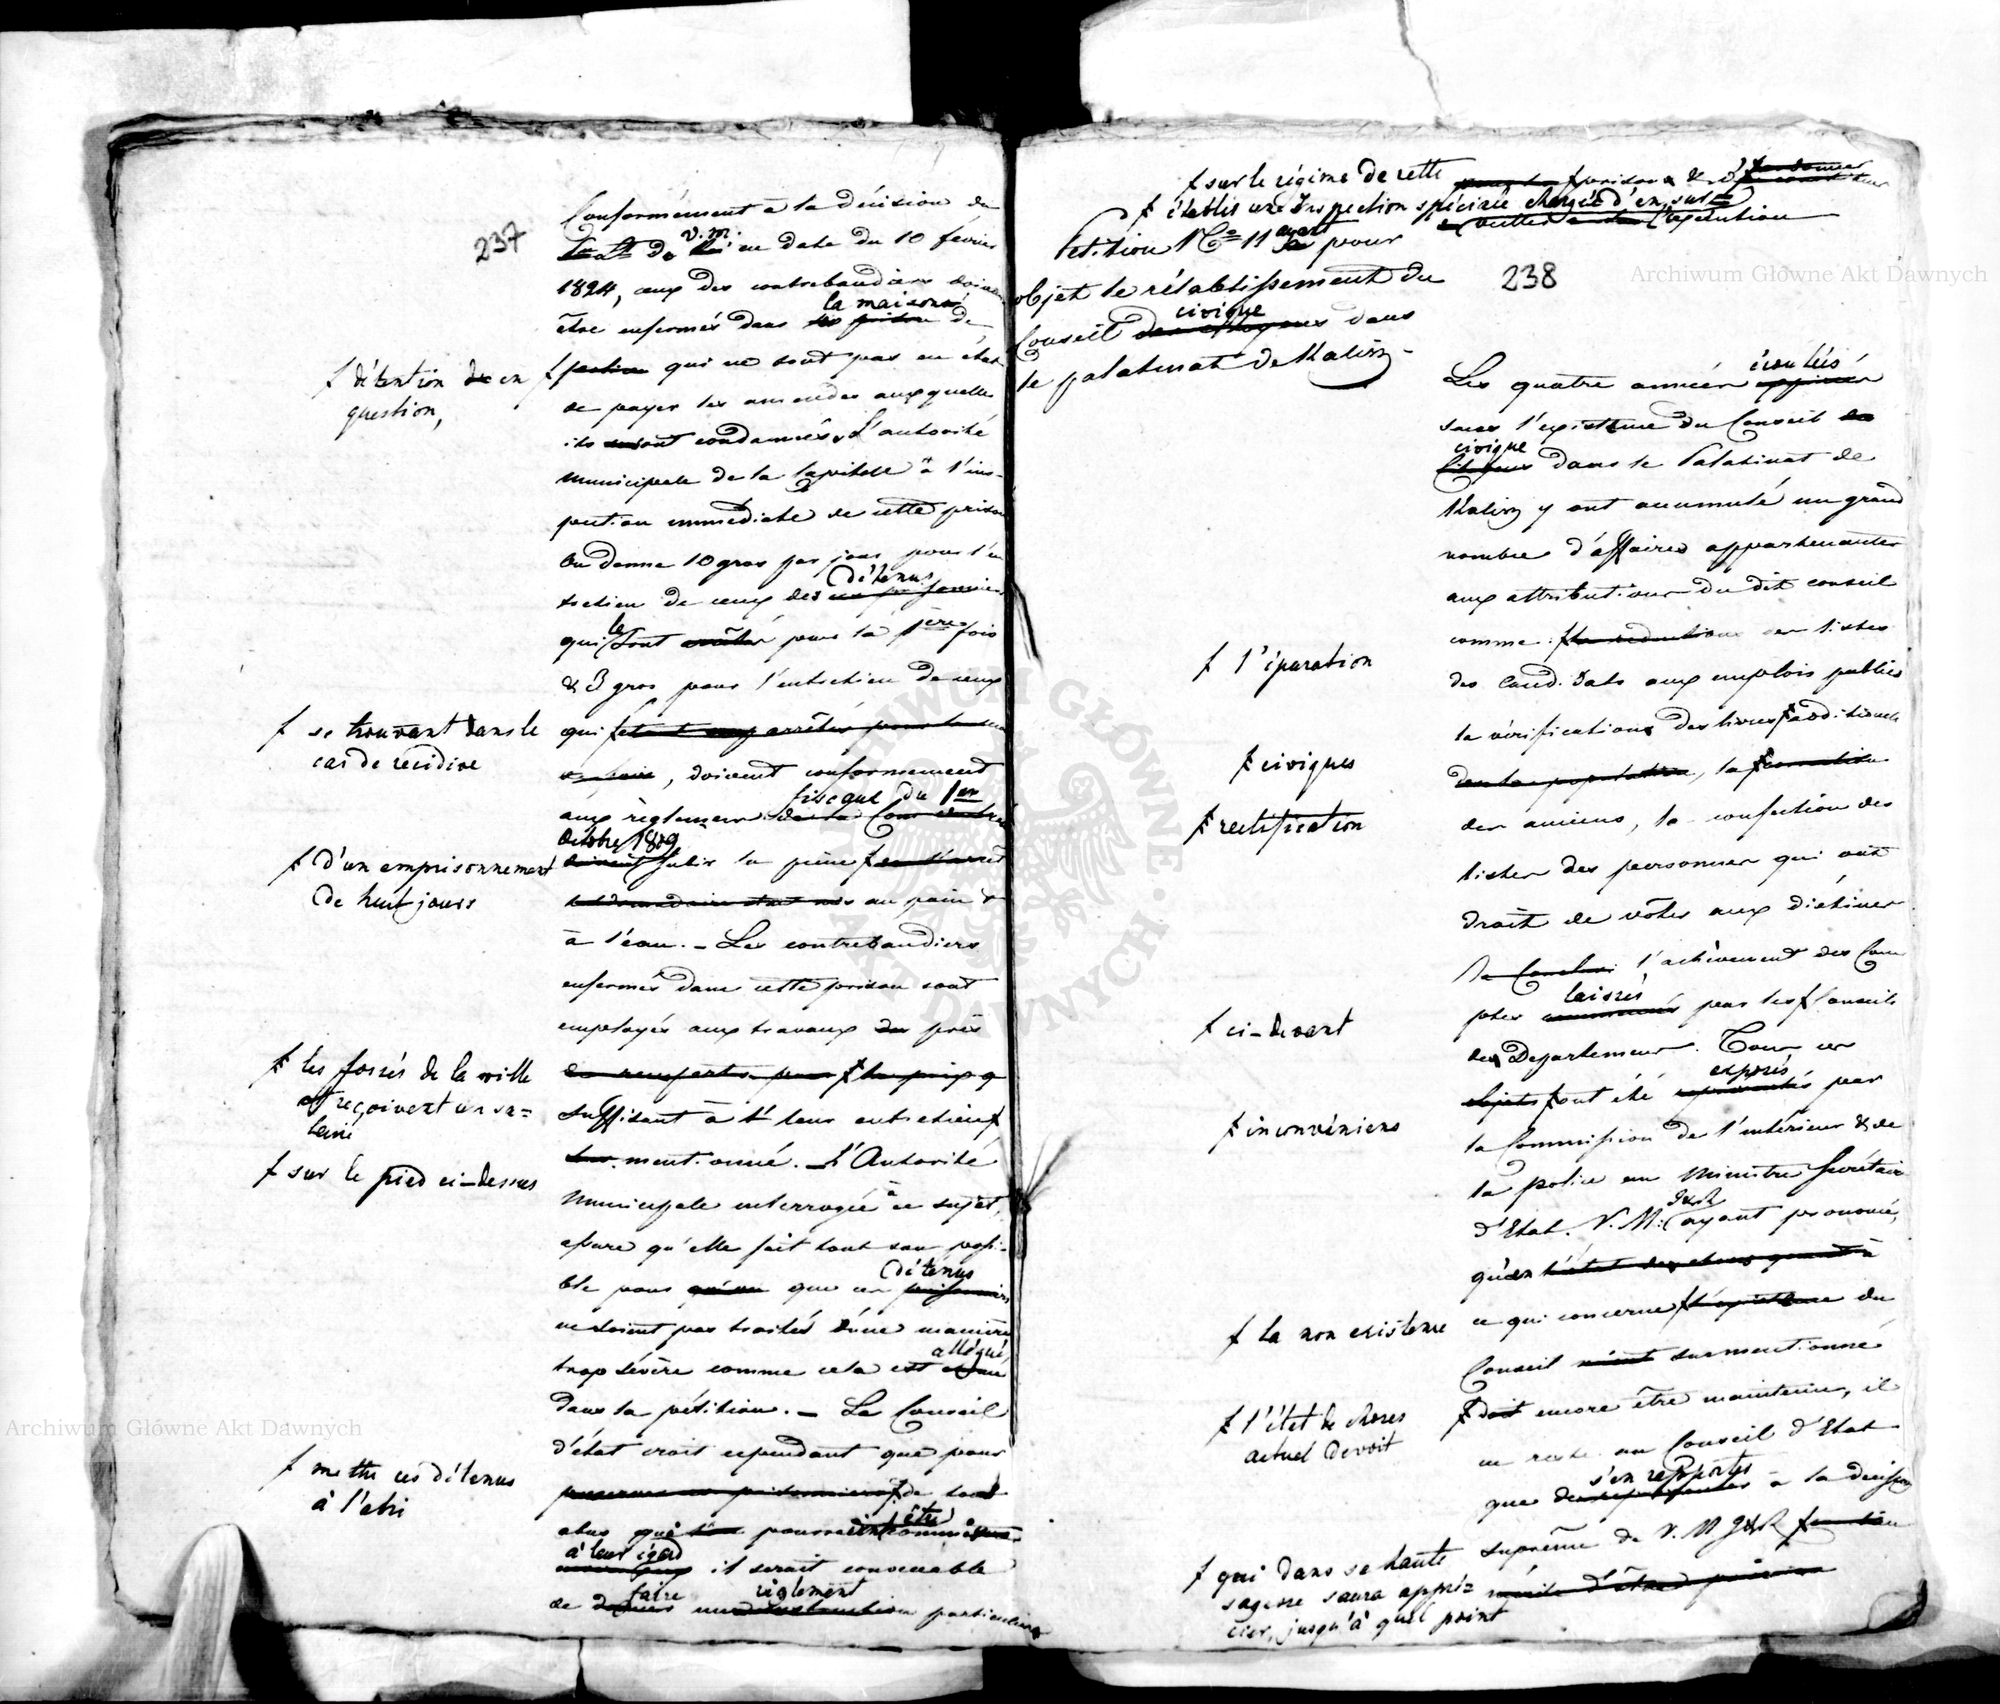 237
Conformément à la décision de
v. m.
en date du 10 février
1824, ceux des contrebandiers doivent
la maison
être enfermés dans les prison de
ƒ détention de en
question,
qui ne sont pas en état
de payer les amendes auxquelles
ils seront condamnés. L'autorité
municipale de la Capitale a l'ins-
pection immédiate de cette prison
On donne 10 gros par jour pour l'en
détenus
tretien de ceux des
qui le sont arrêtés pour la 1ère fois
& 3 gros pour l'entretien de ceux
ƒ se trouvant dans le
cas de recidive
qui ƒ arrêtés pour la
, doivent conformement
fiscaux du 1er
aux règlemens
Octobre 1809
ƒ d'un emprisonnement
de huit jours
subir la peine
au pain &
à l'eau. – Les contrebandiers
enfermés dans cette prison sont
employés aux travaux des près
ƒ les fossés de la ville
et reçoivent un sa=
laire
des remparts pour
suffisant à leur entretien ƒ
ƒ sur le pied ci-dessus
mentionné. – L'Autorité
Municipale interrogée à ce sujet,
assure qu'elle fait tout son possi-
détenus
ble pour qu'on que ces prisonniers
ne soient pas traités d'une manière
allégué,
trop sévère comme cela est
dans la pétition. – Le Conseil
d'état croit cependant que pour
ƒ mettre ces détenus
à l'abri
preserver ces prisonniers ƒ de tout
être
abus qui pourraient
à leur égard
il serait convenable
faire règlement
de donner une instruction particulière
ƒ sur le régime de cette prison & d'y
ƒ établir une Inspection spéciale chargée d'en sur=
veiller l'exécution
Pétition No 11 ayant pour
objet le rétablissement du
civique
Conseil des citoyens dans
le palatinat de Kalisz
238
écoulés
Les quatre années
sans l'existence du Conseil des
civique
Citoyens dans le Palatinat de
Kalisz y ont accumulé un grand
nombre d'affaires appartenantes
aux attributions du dit conseil
ƒ l'épuration
comme : ƒ la reduction des listes
des Candidats aux emplois publics
ƒ civiques
la vérification des livres ƒ additionels
ƒ rectification
de la population, la ƒ
des anciens, la confection des
listes des personnes qui ont
droit de voter aux diétines
l'achèvement des Com
laissés
ptes par les ƒ Conseils
ƒ ci-devant
des Departemens. Tous ces
exposés
objets ƒ ont été représentés par
ƒ inconvéniens
la Commission de l'intérieur & de
la police au Ministre Secrétaire
I & R
d'Etat. V. M. ayant prononcé,
qu'en l'état des choses quant à
ƒ la non existence
ce qui concerne ƒ l'existence du
Conseil surmentionné
ƒ l'état de choses
actuel devoit
ƒ doit encore être maintenu, il
ne reste au Conseil d'Etat
s'en rapporter
que à la décision
suprême de V. M I & R ƒ
ƒ qui dans sa haute
sagesse saura appré=
cier, jusqu'à quel point
Archiwum Główne Akt Dawnych
Archiwum Główne Akt Dawnych
ARCHIWUM GŁÓWNE · AKT DAWNYCH ·